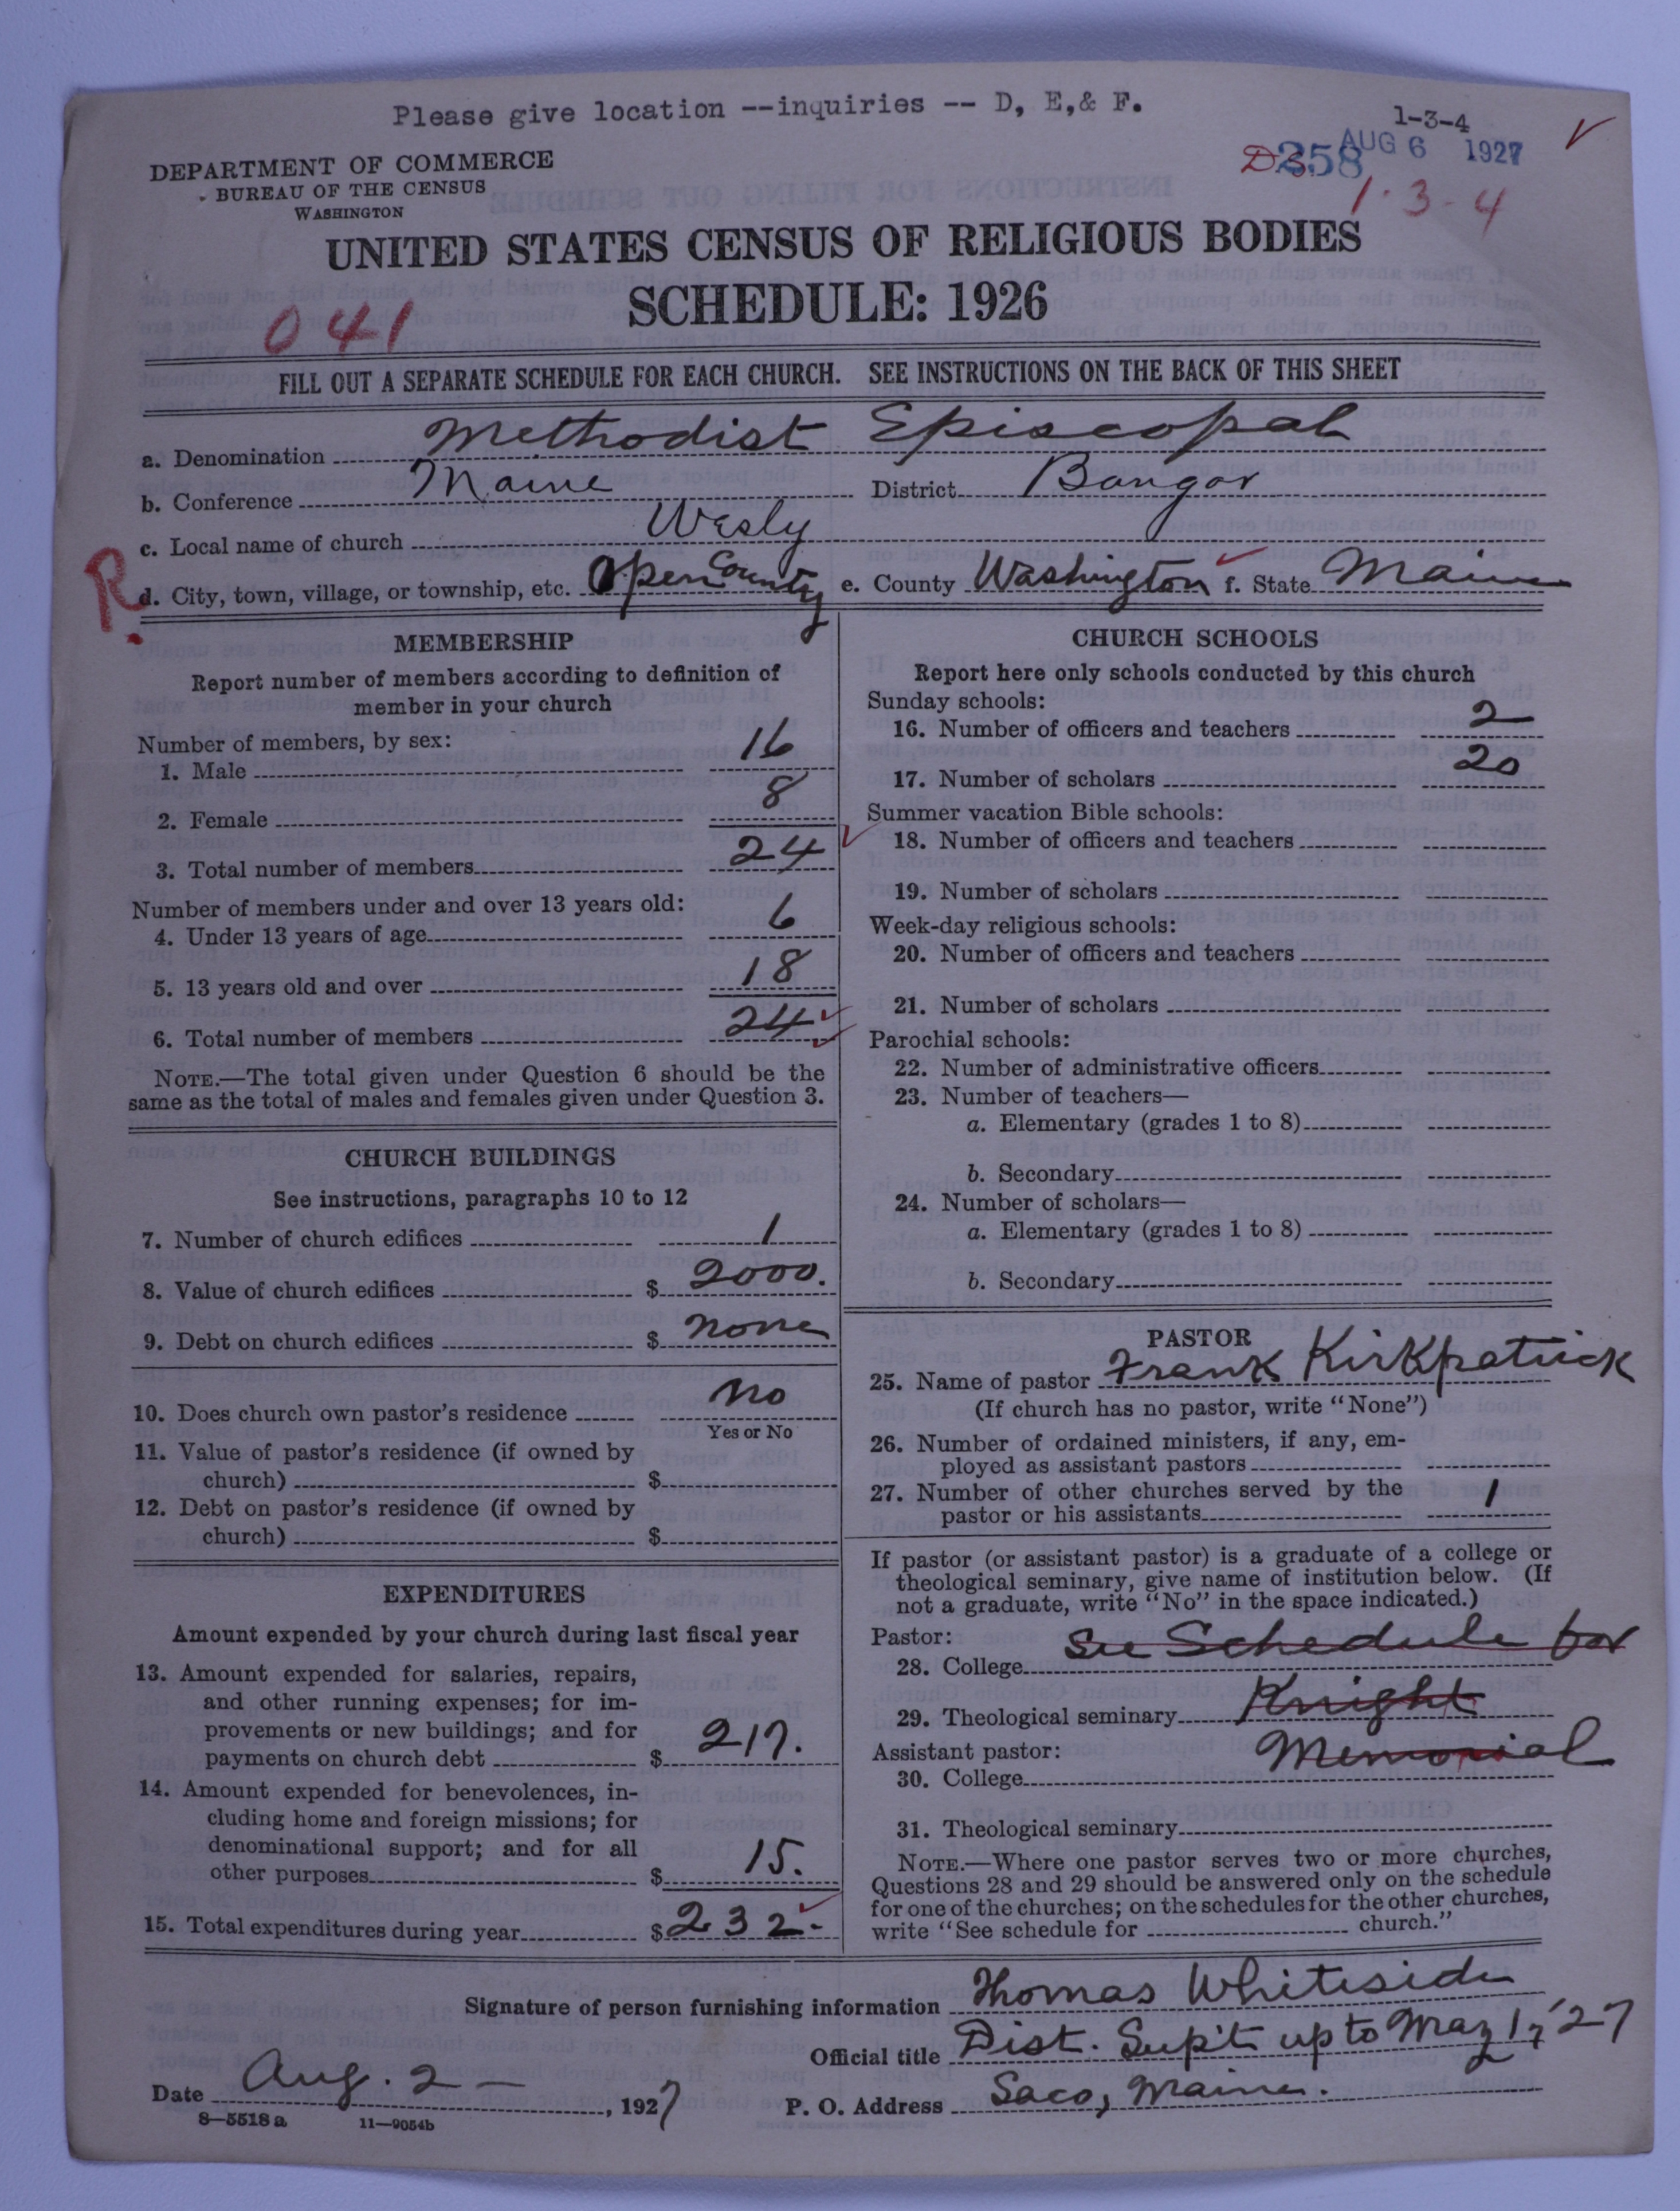 Please give location --inquiries -- D, E,& F.
1-3-4
DEPARTMENT OF COMMERCE
BUREAU OF THE CENSUS
WASHINGTON
258 AUG 6 1927
1-3-4
UNITED STATES CENSUS OF RELIGIOUS BODIES
SCHEDULE: 1926
041
FILL OUT A SEPARATE SCHEDULE FOR EACH CHURCH. SEE INSTRUCTIONS ON THE BACK OF THIS SHEET
a. Denomination Methodist Episcopal
b. Conference Maine District Bangor
c. Local name of church Wesly
R.
d. City, town, village, or township, etc. Open County e. County Washington f. State Maine
MEMBERSHIP
Report number of members according to definition of
member in your church
Number of members, by sex:
1. Male 16
2. Female 8
3. Total number of members 24
Number of members under and over 13 years old:
4. Under 13 years of age 6
5. 13 years old and over 18
6. Total number of members 24
NOTE.—The total given under Question 6 should be the
same as the total of males and females given under Question 3.
CHURCH BUILDINGS
See instructions, paragraphs 10 to 12
7. Number of church edifices 1
8. Value of church edifices $ 2000.
9. Debt on church edifices $ none
10. Does church own pastor's residence No
Yes or No
11. Value of pastor's residence (if owned by
church) $
12. Debt on pastor's residence (if owned by
church) $
EXPENDITURES
Amount expended by your church during last fiscal year
13. Amount expended for salaries, repairs,
and other running expenses; for im-
provements or new buildings; and for
payments on church debt $ 217.
14. Amount expended for benevolences, in-
cluding home and foreign missions; for
denominational support; and for all
other purposes $ 15.
15. Total expenditures during year $ 232.
CHURCH SCHOOLS
Report here only schools conducted by this church
Sunday schools:
16. Number of officers and teachers 2
17. Number of scholars 20
Summer vacation Bible schools:
18. Number of officers and teachers
19. Number of scholars
Week-day religious schools:
20. Number of officers and teachers
21. Number of scholars
Parochial schools:
22. Number of administrative officers
23. Number of teachers—
a. Elementary (grades 1 to 8)
b. Secondary
24. Number of scholars—
a. Elementary (grades 1 to 8)
b. Secondary
PASTOR
25. Name of pastor Frank Kirkpatrick
(If church has no pastor, write "None")
26. Number of ordained ministers, if any, em-
ployed as assistant pastors
27. Number of other churches served by the
pastor or his assistants 1
If pastor (or assistant pastor) is a graduate of a college or
theological seminary, give name of institution below. (If
not a graduate, write "No" in the space indicated.)
Pastor:
28. College See Schedule for
29. Theological seminary Knight
Assistant pastor: Memorial
30. College
31. Theological seminary
NOTE.—Where one pastor serves two or more churches,
Questions 28 and 29 should be answered only on the schedule
for one of the churches; on the schedules for the other churches,
write "See schedule for church."
Signature of person furnishing information Thomas Whiteside
Official title Dist. Sup't up to May 17 '27
Date Aug. 2 —, 1927 P. O. Address Saco, Maine.
8—5518a 11—9054b